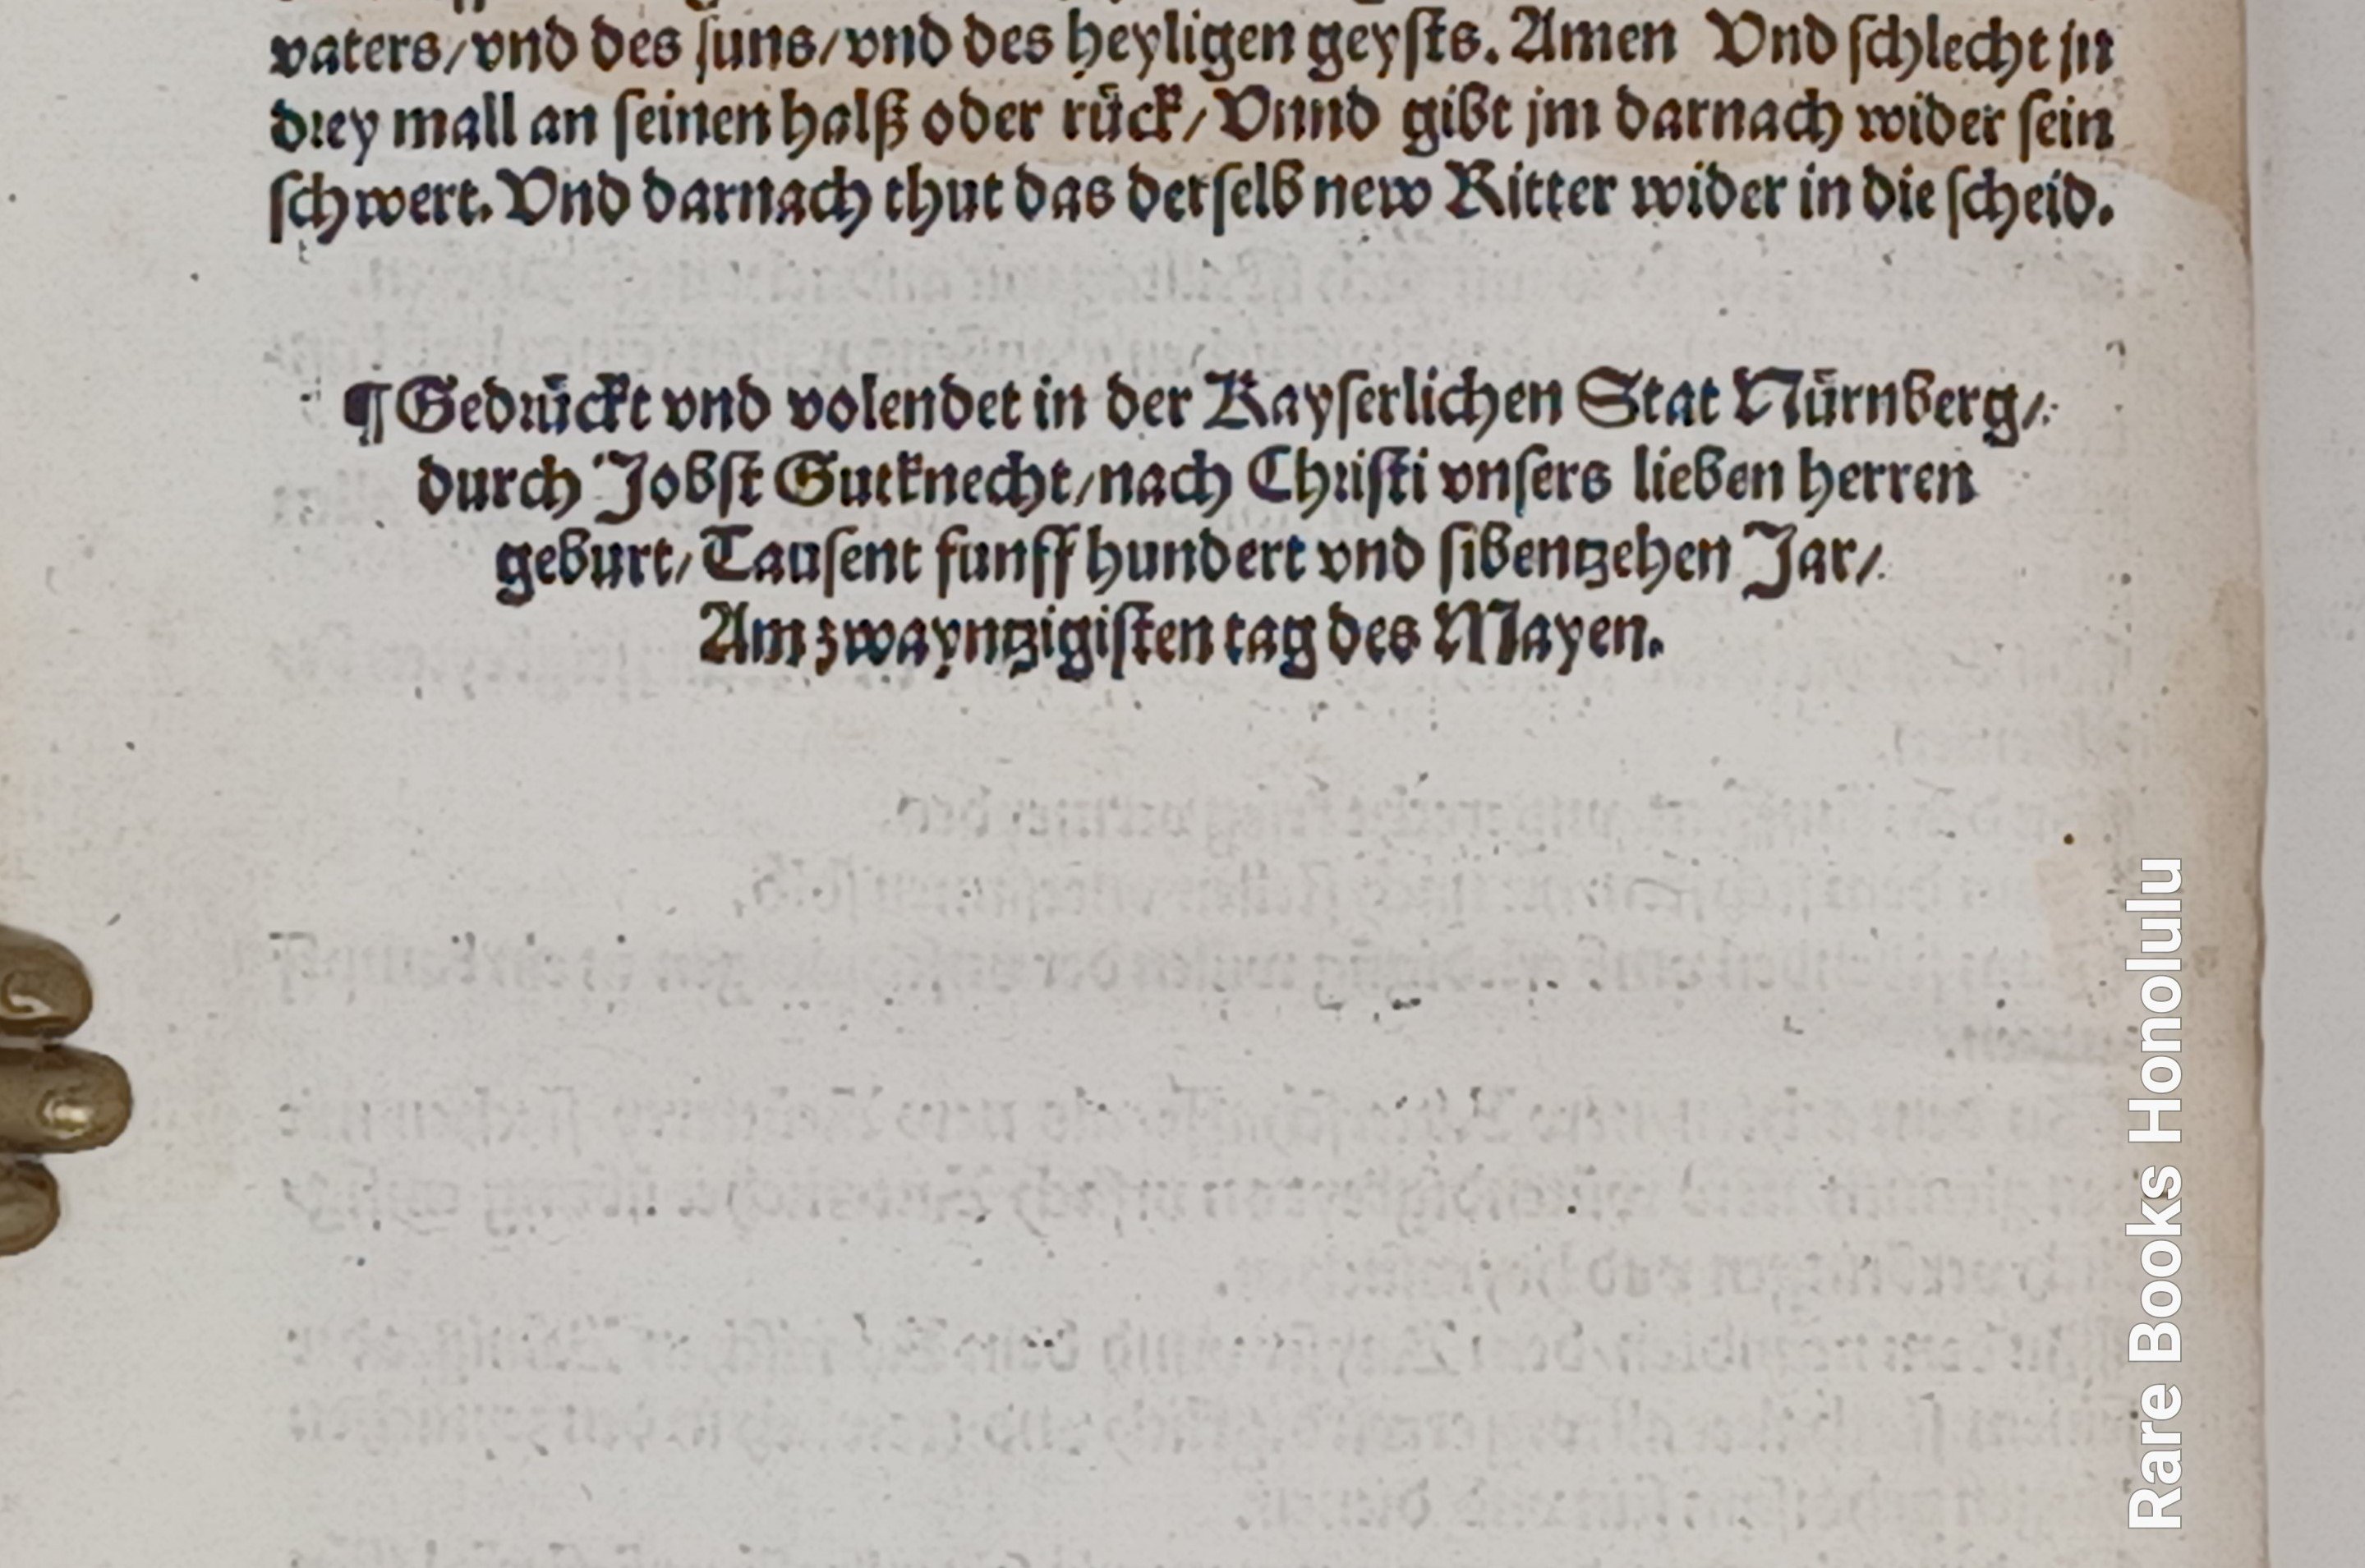 vaters/vnd des ſuns/vnd des heyligen geyſts. Amen Vnd ſchlecht jn
drey mall an ſeinen halß oder rück/Vnnd gibt jm darnach wider ſein
ſchwert. Vnd darnach thut das derſelb new Ritter wider in die ſcheid.
¶ Gedrückt vnd volendet in der Kayſerlichen Stat Nürnberg/
durch Jobſt Gutknecht/nach Chriſti vnſers lieben herren
geburt/Tauſent funff hundert vnd ſibentzehen Jar/
Am zwayntzigiſten tag des Mayen.
Rare Books Honolulu